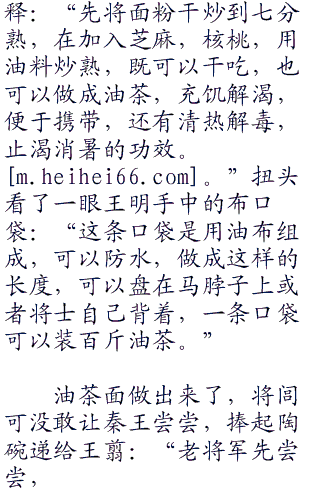 释：“先将面粉干炒到七分
熟，在加入芝麻，核桃，用
油料炒熟，既可以干吃，也
可以做成油茶，充饥解渴，
便于携带，还有清热解毒，
止渴消暑的功效。
[m.heihei66.com]。”扭头
看了一眼王明手中的布口
袋：“这条口袋是用油布组
成，可以防水，做成这样的
长度，可以盘在马脖子上或
者将士自己背着，一条口袋
可以装百斤油茶。”
油茶面做出来了，将闾
可没敢让秦王尝尝，捧起陶
碗递给王翦：“老将军先尝
尝，